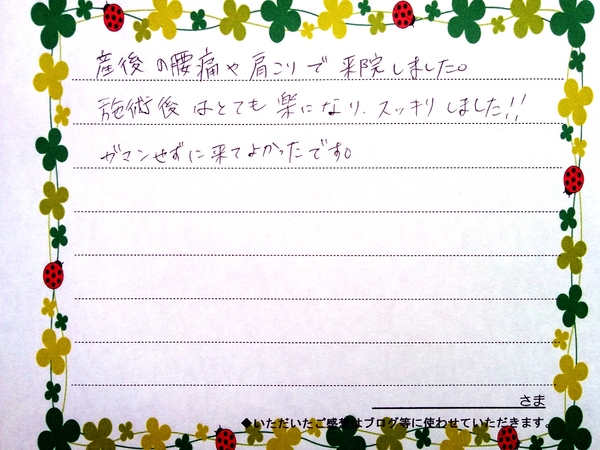 産後の腰痛や肩こりで来院しました。
施術後はとても楽になり、スッキリしました!!
ガマンせずに来てよかったです。
さま
◆いただいたご感想はブログ等に使わせていただきます。